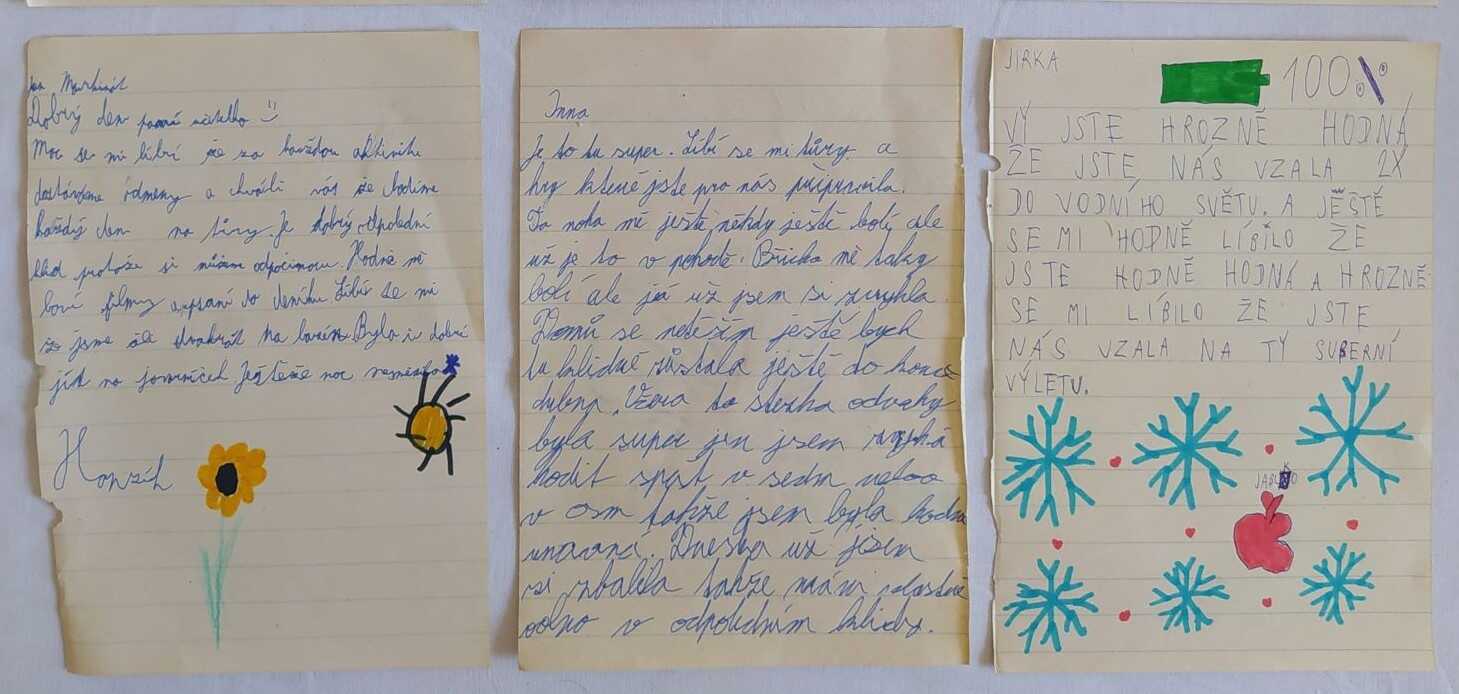 Dobrý den paní učitelko :)
Moc se mi líbí že za každou aktivitu
dostáváme odměny a chválí vás že chodíme
každý den na túry. Je dobrý odpolední
klid protože si můžem odpočinou. Hodně mě
baví filmy a psaní do deníku Líbí se mi
že jsme šli dvakrát na bazén. Bylo i dobrí
jít na
Honzík
Inna
Je to tu super. Líbí se mi túry a
hry které jste pro nás připravila.
Ta noha mě ještě někdy ještě bolí, ale
už je to v pohodě. Bříško mě taky
bolí ale já už jsem si zvykla.
Domů se netěším ještě bych
tu klidně zůstala ještě do konce
dubna. Včera ta stezka odvahy
byla super jen jsem zvyklá
chodit spát v sedm nebo
v osm takže jsem byla hodně
unavaná. Dneska už jsem
si zbalila takže mám vlastně
volno v odpoledním klidu.
JIRKA
100%
VY JSTE HROZNĚ HODNÁ
ŽE JSTE NÁS VZALA 2X
DO VODNÍHO SVĚTU. A JĚŠTĚ
SE MI HODNĚ LÍBILO ŽE
JSTE HODNĚ HODNÁ A HROZNĚ
SE MI LÍBILO ŽE JSTE
NÁS VZALA NA TY SUBERNÍ
VÝLETU.
JABLKO